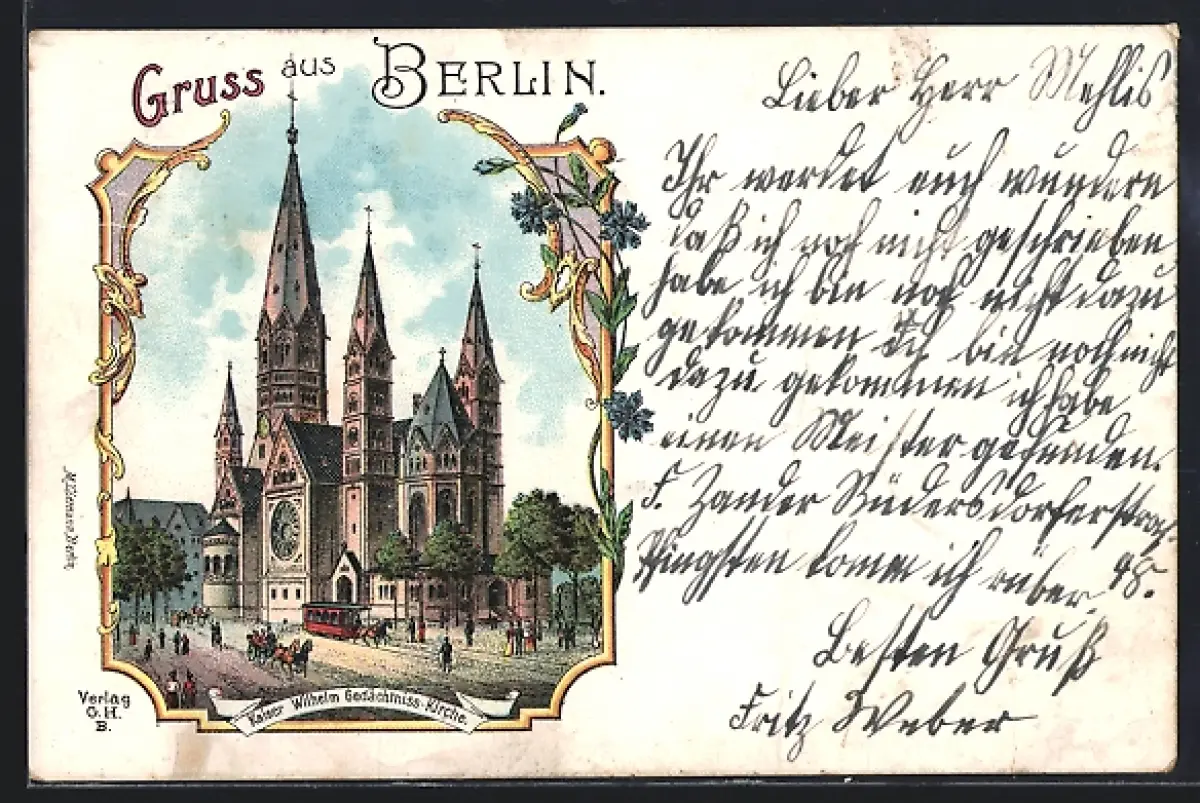 Gruss aus BERLIN.
Lieber Herr Mehlis
Ihr werdet euch wundern
daß ich noch nicht geschrieben
habe ich bin noch nicht dazu
gekommen Ich bin noch nicht
dazu gekommen ich habe
einen Meister gefunden.
F. Zander Rüdersdorferstraß
Pfingsten komme ich rüber. 48.
Besten Gruß
Fritz Weber
Verlag
G. H.
B.
Kaiser Wilhelm Gedächtniss-Kirche.